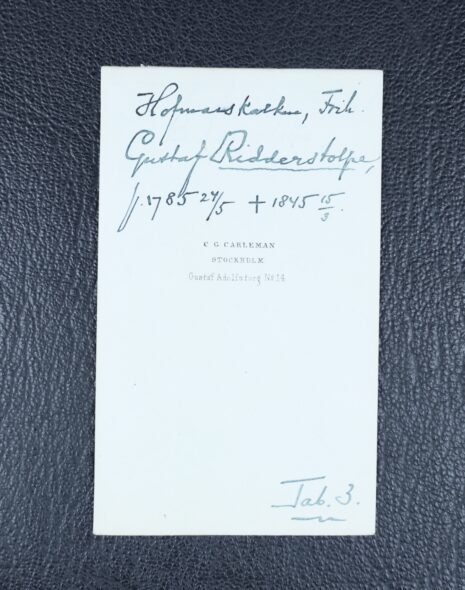 Hofmarskalken, Frih.
Gustaf Ridderstolpe,
f. 1785 24/5 + 1845 15/3.
C G CARLEMAN
STOCKHOLM
Gustaf Adolfs torg No 14
Tab. 3.